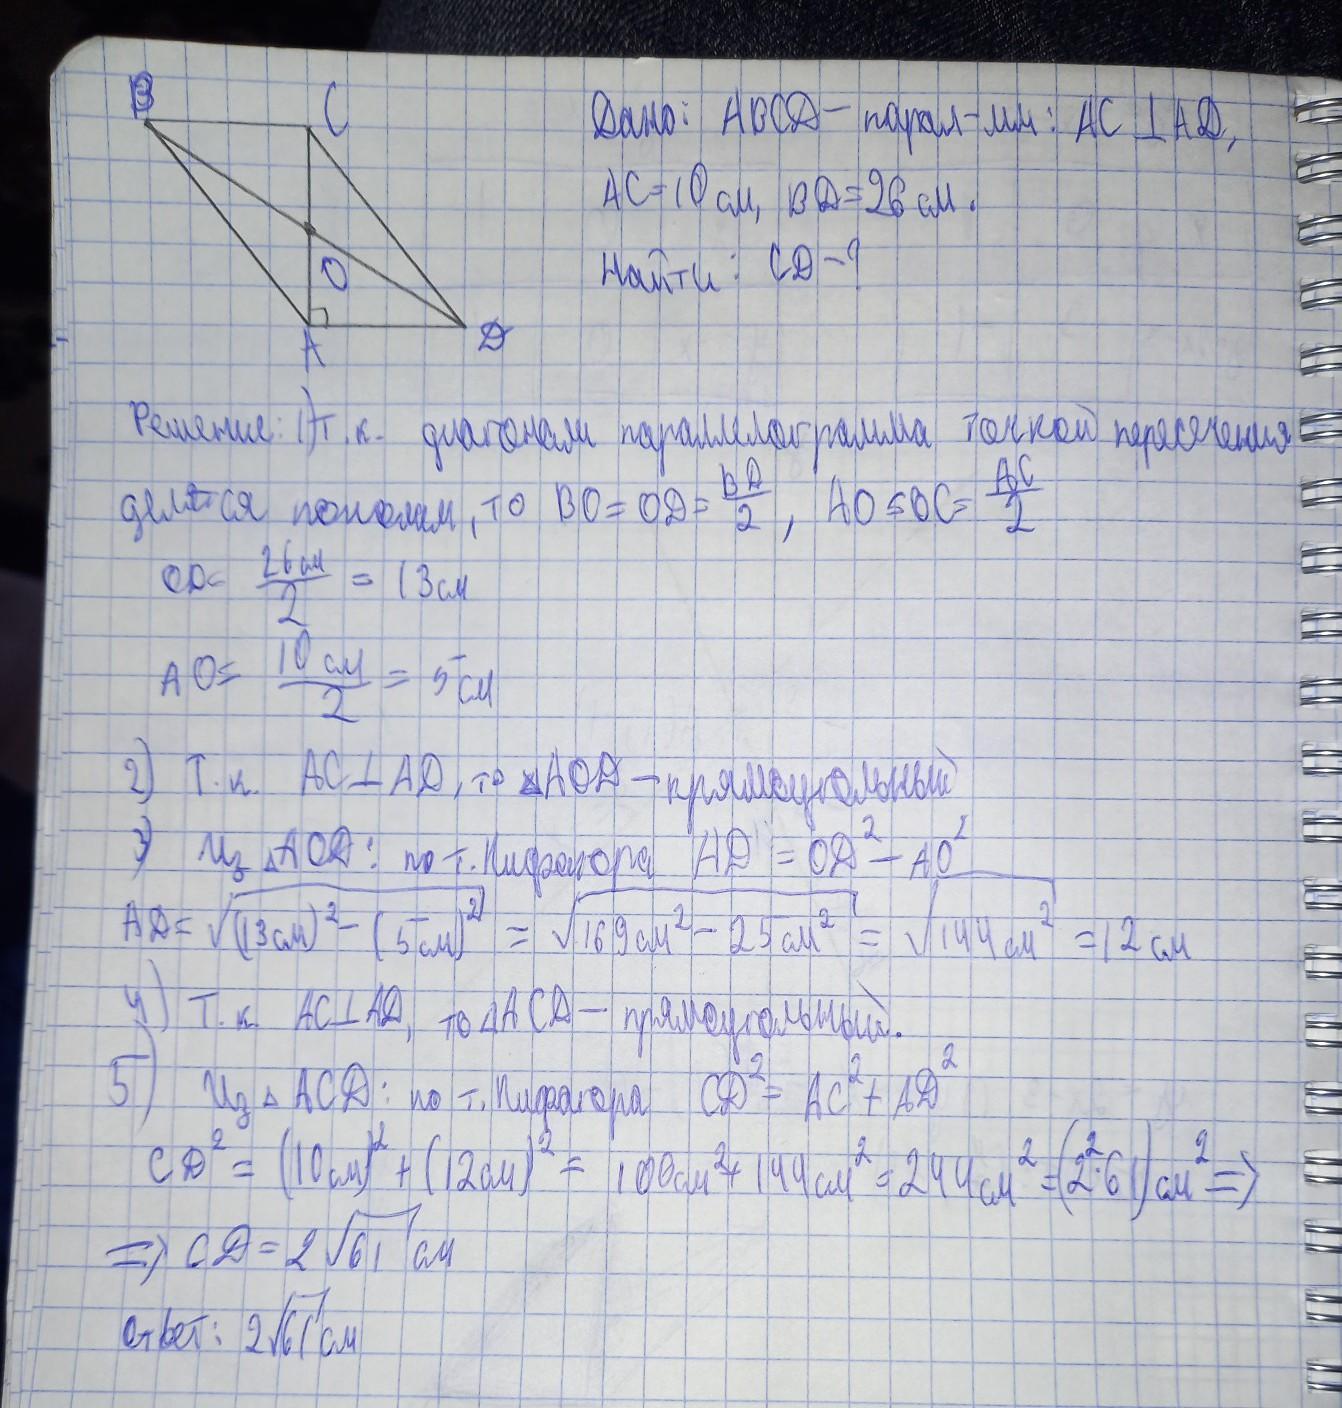 B
C
Дано: ABCD - парал-мм: AC ⊥ AD,
AC = 10 см, BD = 26 см.
Найти: CD - ?
O
A
D
Решение: 1) Т.к. диагонали параллелограмма точкой пересечения
делятся пополам, то BO = OD = BD/2, AO = OC = AC/2
OD = 26 см/2 = 13 см
AO = 10 см/2 = 5 см
2) Т.к. AC ⊥ AD, то △AOD - прямоугольный
3) Из △AOD: по т. Пифагора AD = OD² - AO²
AD = √((13 см)² - (5 см)²) = √(169 см² - 25 см²) = √(144 см²) = 12 см
4) Т.к. AC ⊥ AD, то △ACD - прямоугольный.
5) Из △ ACD: по т. Пифагора CD² = AC² + AD²
CD² = (10 см)² + (12 см)² = 100 см² + 144 см² = 244 см² = (2²·61) см² =>
=> CD = 2√61 см
Ответ: 2√61 см